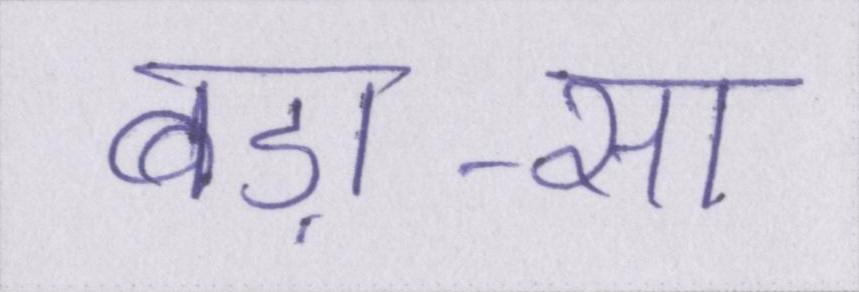 बड़ा-सा